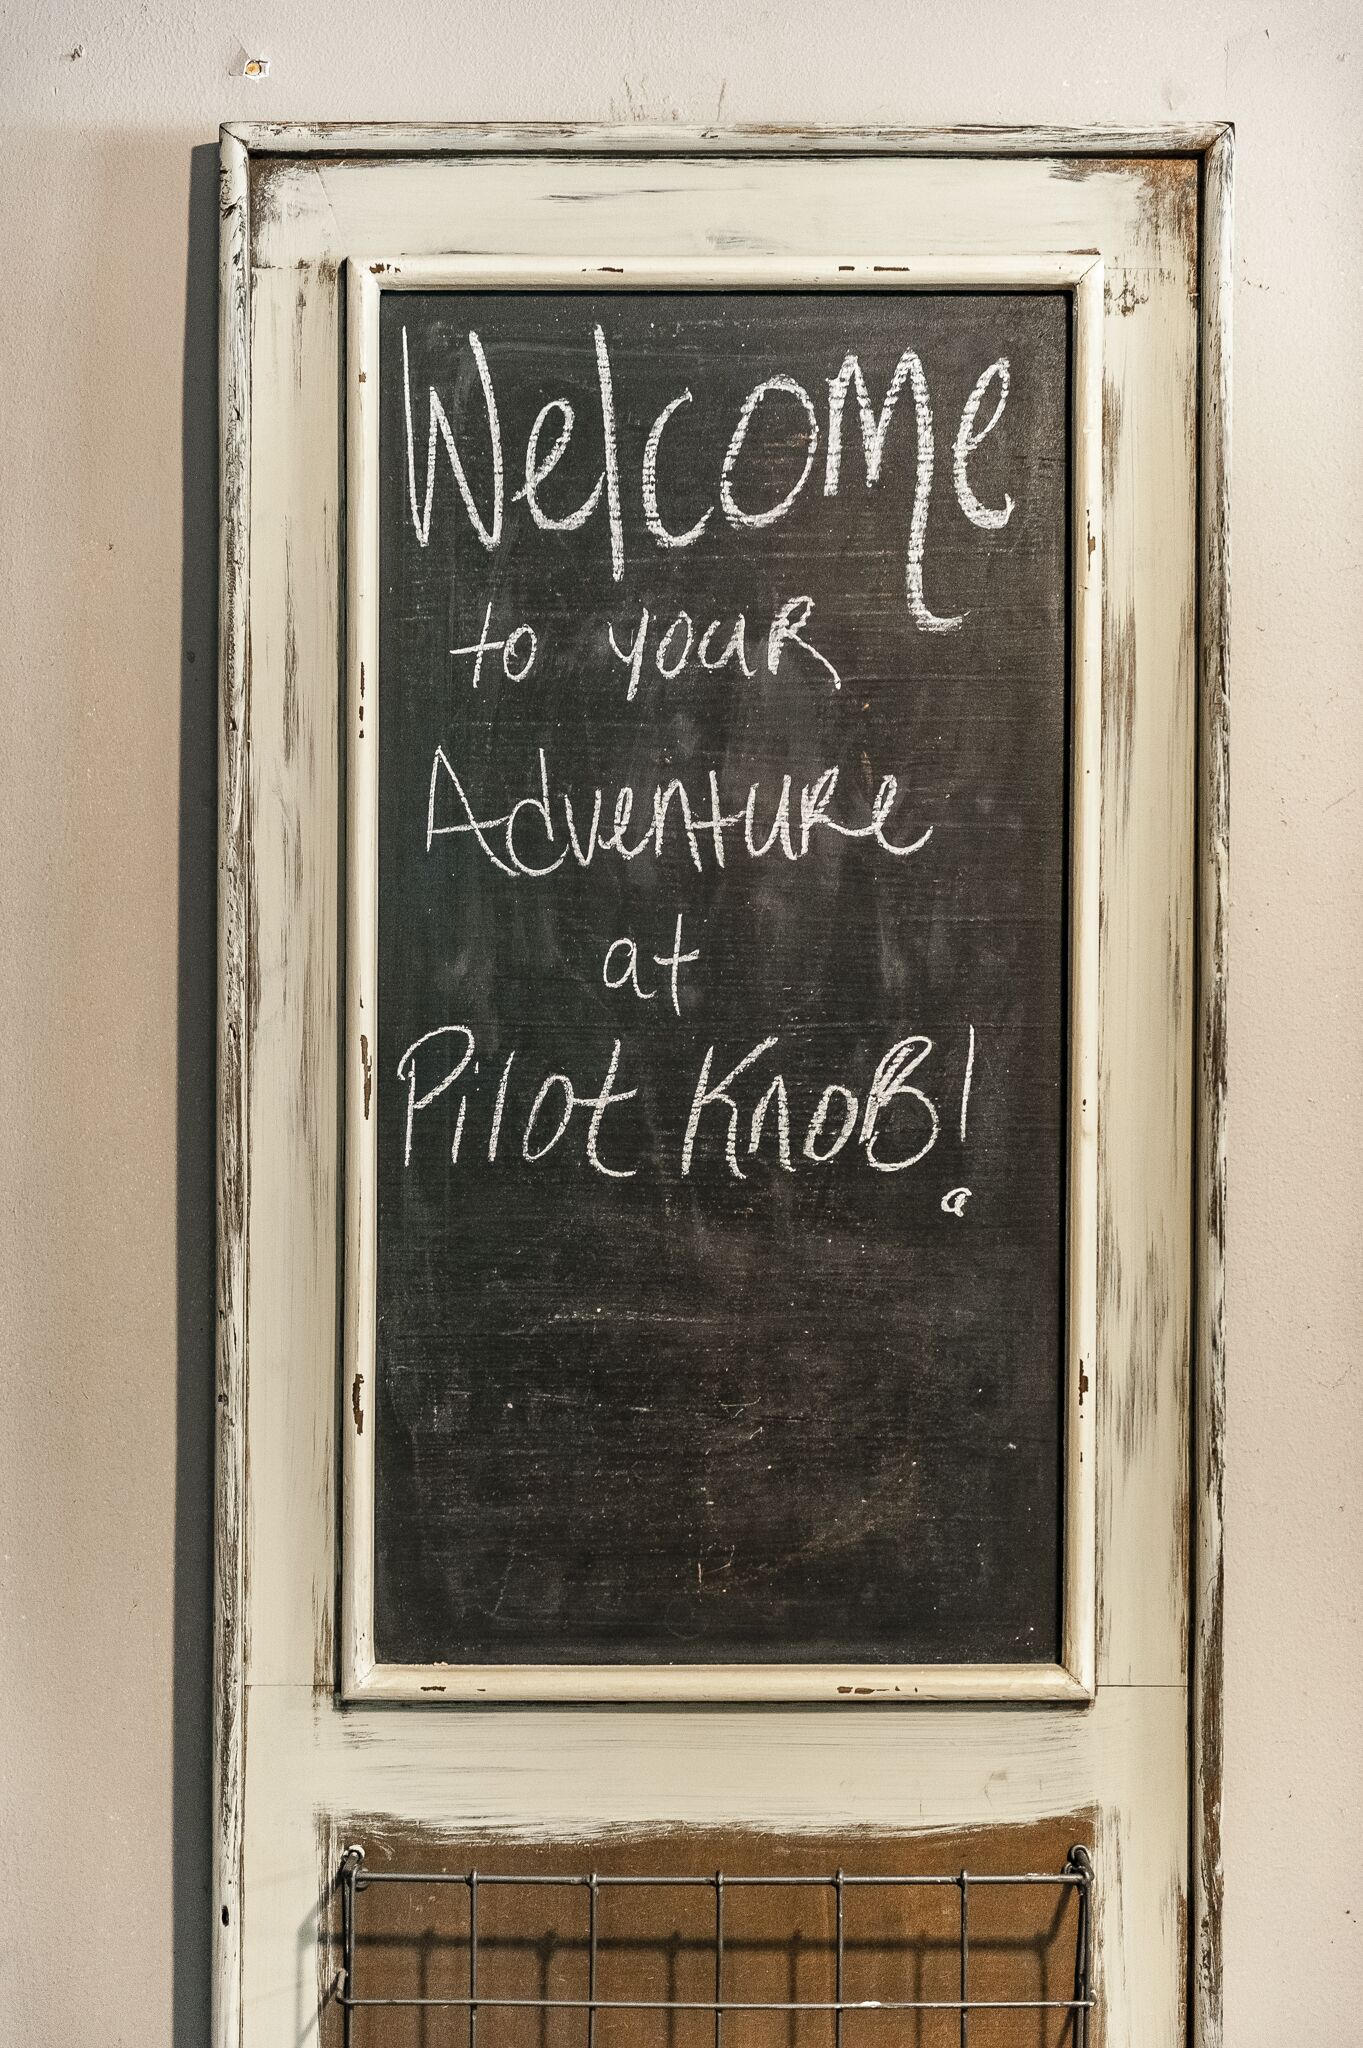 Welcome
to youR
AdventuRe
at
Pilot KnoB!